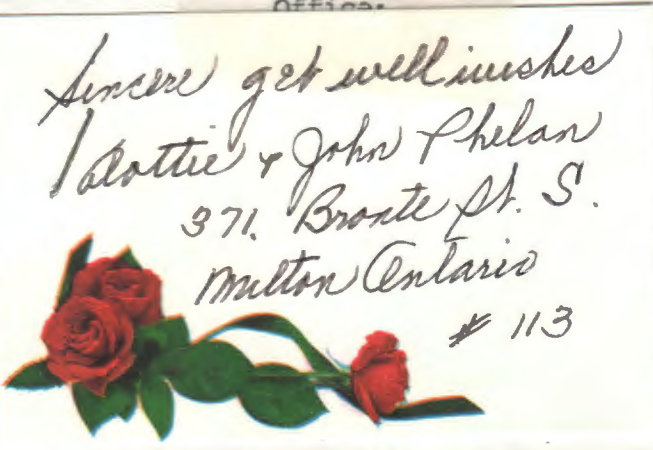 Office.
Sincere get well wishes
Dottie & John Phelan
371. Bronte St. S.
Milton Ontario
# 113